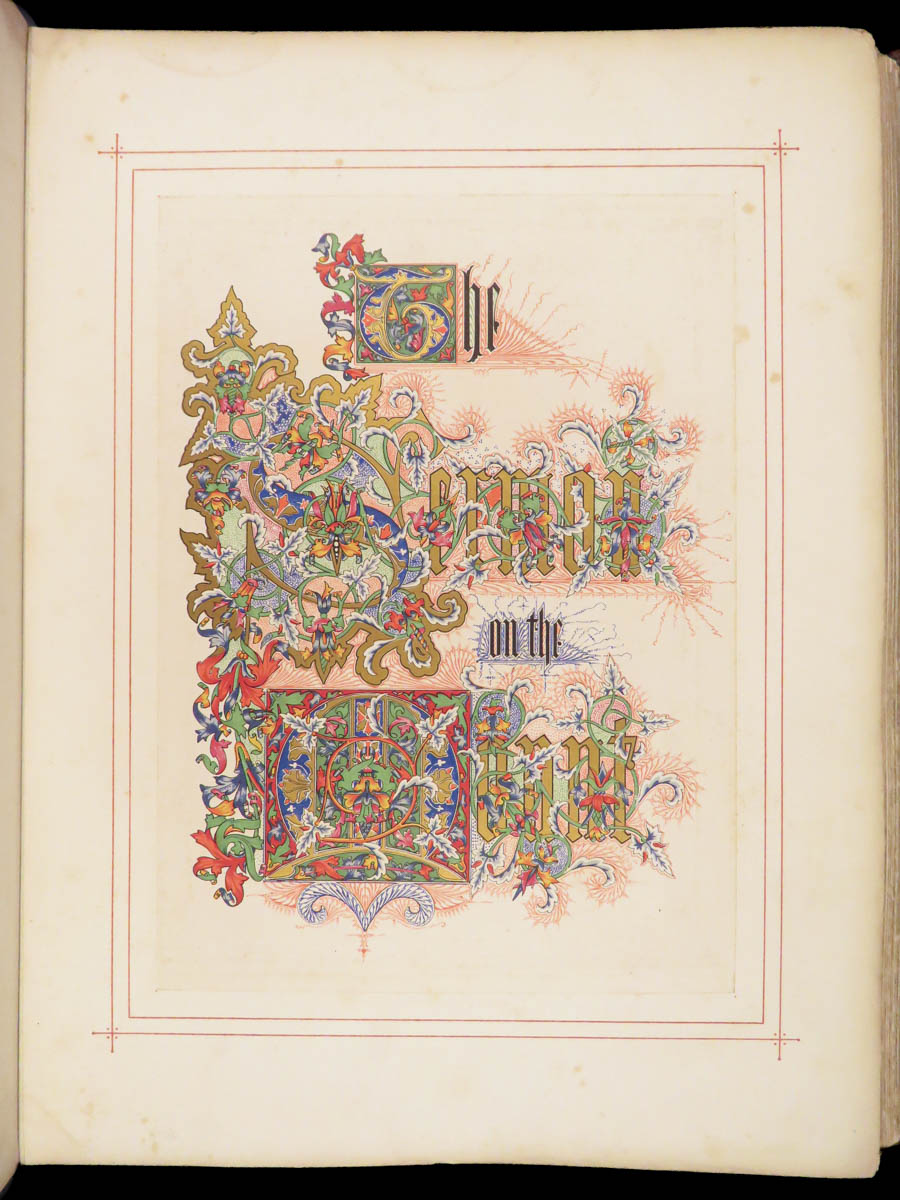 The
Sermon
on the
Mount